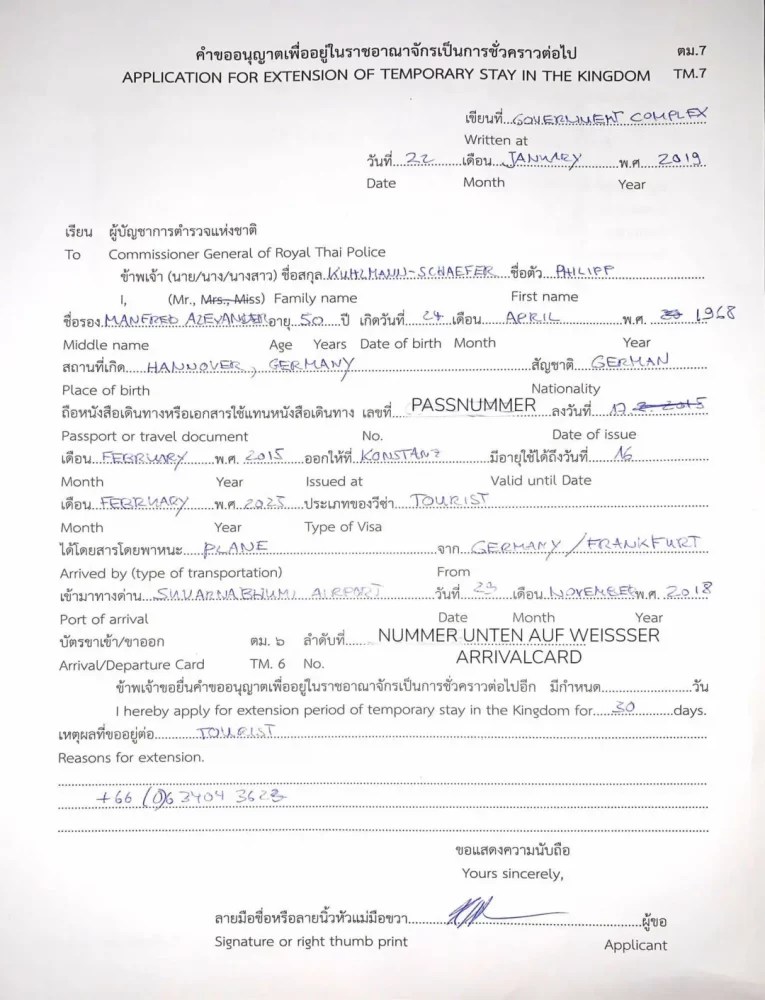 คำขออนุญาตเพื่ออยู่ในราชอาณาจักรเป็นการชั่วคราวต่อไป ตม.7
APPLICATION FOR EXTENSION OF TEMPORARY STAY IN THE KINGDOM TM.7
เขียนที่ GOVERNMENT COMPLEX
Written at
วันที่ 22 เดือน JANUARY พ.ศ. 2019
Date Month Year
เรียน ผู้บัญชาการตำรวจแห่งชาติ
To Commissioner General of Royal Thai Police
ข้าพเจ้า (นาย/นาง/นางสาว) ชื่อสกุล KUHLMANN-SCHAEFER ชื่อตัว PHILIPP
I, (Mr., Mrs., Miss) Family name First name
ชื่อรอง MANFRED ALEXANDER อายุ 50 ปี เกิดวันที่ 24 เดือน APRIL พ.ศ. 1968
Middle name Age Years Date of birth Month Year
สถานที่เกิด HANNOVER, GERMANY สัญชาติ GERMAN
Place of birth Nationality
ถือหนังสือเดินทางหรือเอกสารใช้แทนหนังสือเดินทาง เลขที่ PASSNUMMER ลงวันที่ 17 2. 2015
Passport or travel document No. Date of issue
เดือน FEBRUARY พ.ศ. 2015 ออกให้ที่ KONSTANZ มีอายุใช้ได้ถึงวันที่ 16
Month Year Issued at Valid until Date
เดือน FEBRUARY พ.ศ. 2025 ประเภทของวีซ่า TOURIST
Month Year Type of Visa
ได้โดยสารโดยพาหนะ PLANE จาก GERMANY/FRANKFURT
Arrived by (type of transportation) From
เข้ามาทางด่าน SUVARNABHUMI AIRPORT วันที่ 29 เดือน NOVEMBER พ.ศ. 2018
Port of arrival Date Month Year
บัตรขาเข้า/ขาออก ตม. ๖ ลำดับที่ NUMMER UNTEN AUF WEISSSER
Arrival/Departure Card TM. 6 No. ARRIVALCARD
ข้าพเจ้าขอยื่นคำขออนุญาตเพื่ออยู่ในราชอาณาจักรเป็นการชั่วคราวต่อไปอีก มีกำหนด วัน
I hereby apply for extension period of temporary stay in the Kingdom for 30 days.
เหตุผลที่ขออยู่ต่อ TOURIST
Reasons for extension.
+66 (0)6 3404 3623
ขอแสดงความนับถือ
Yours sincerely,
ลายมือชื่อหรือลายนิ้วหัวแม่มือขวา ผู้ขอ
Signature or right thumb print Applicant